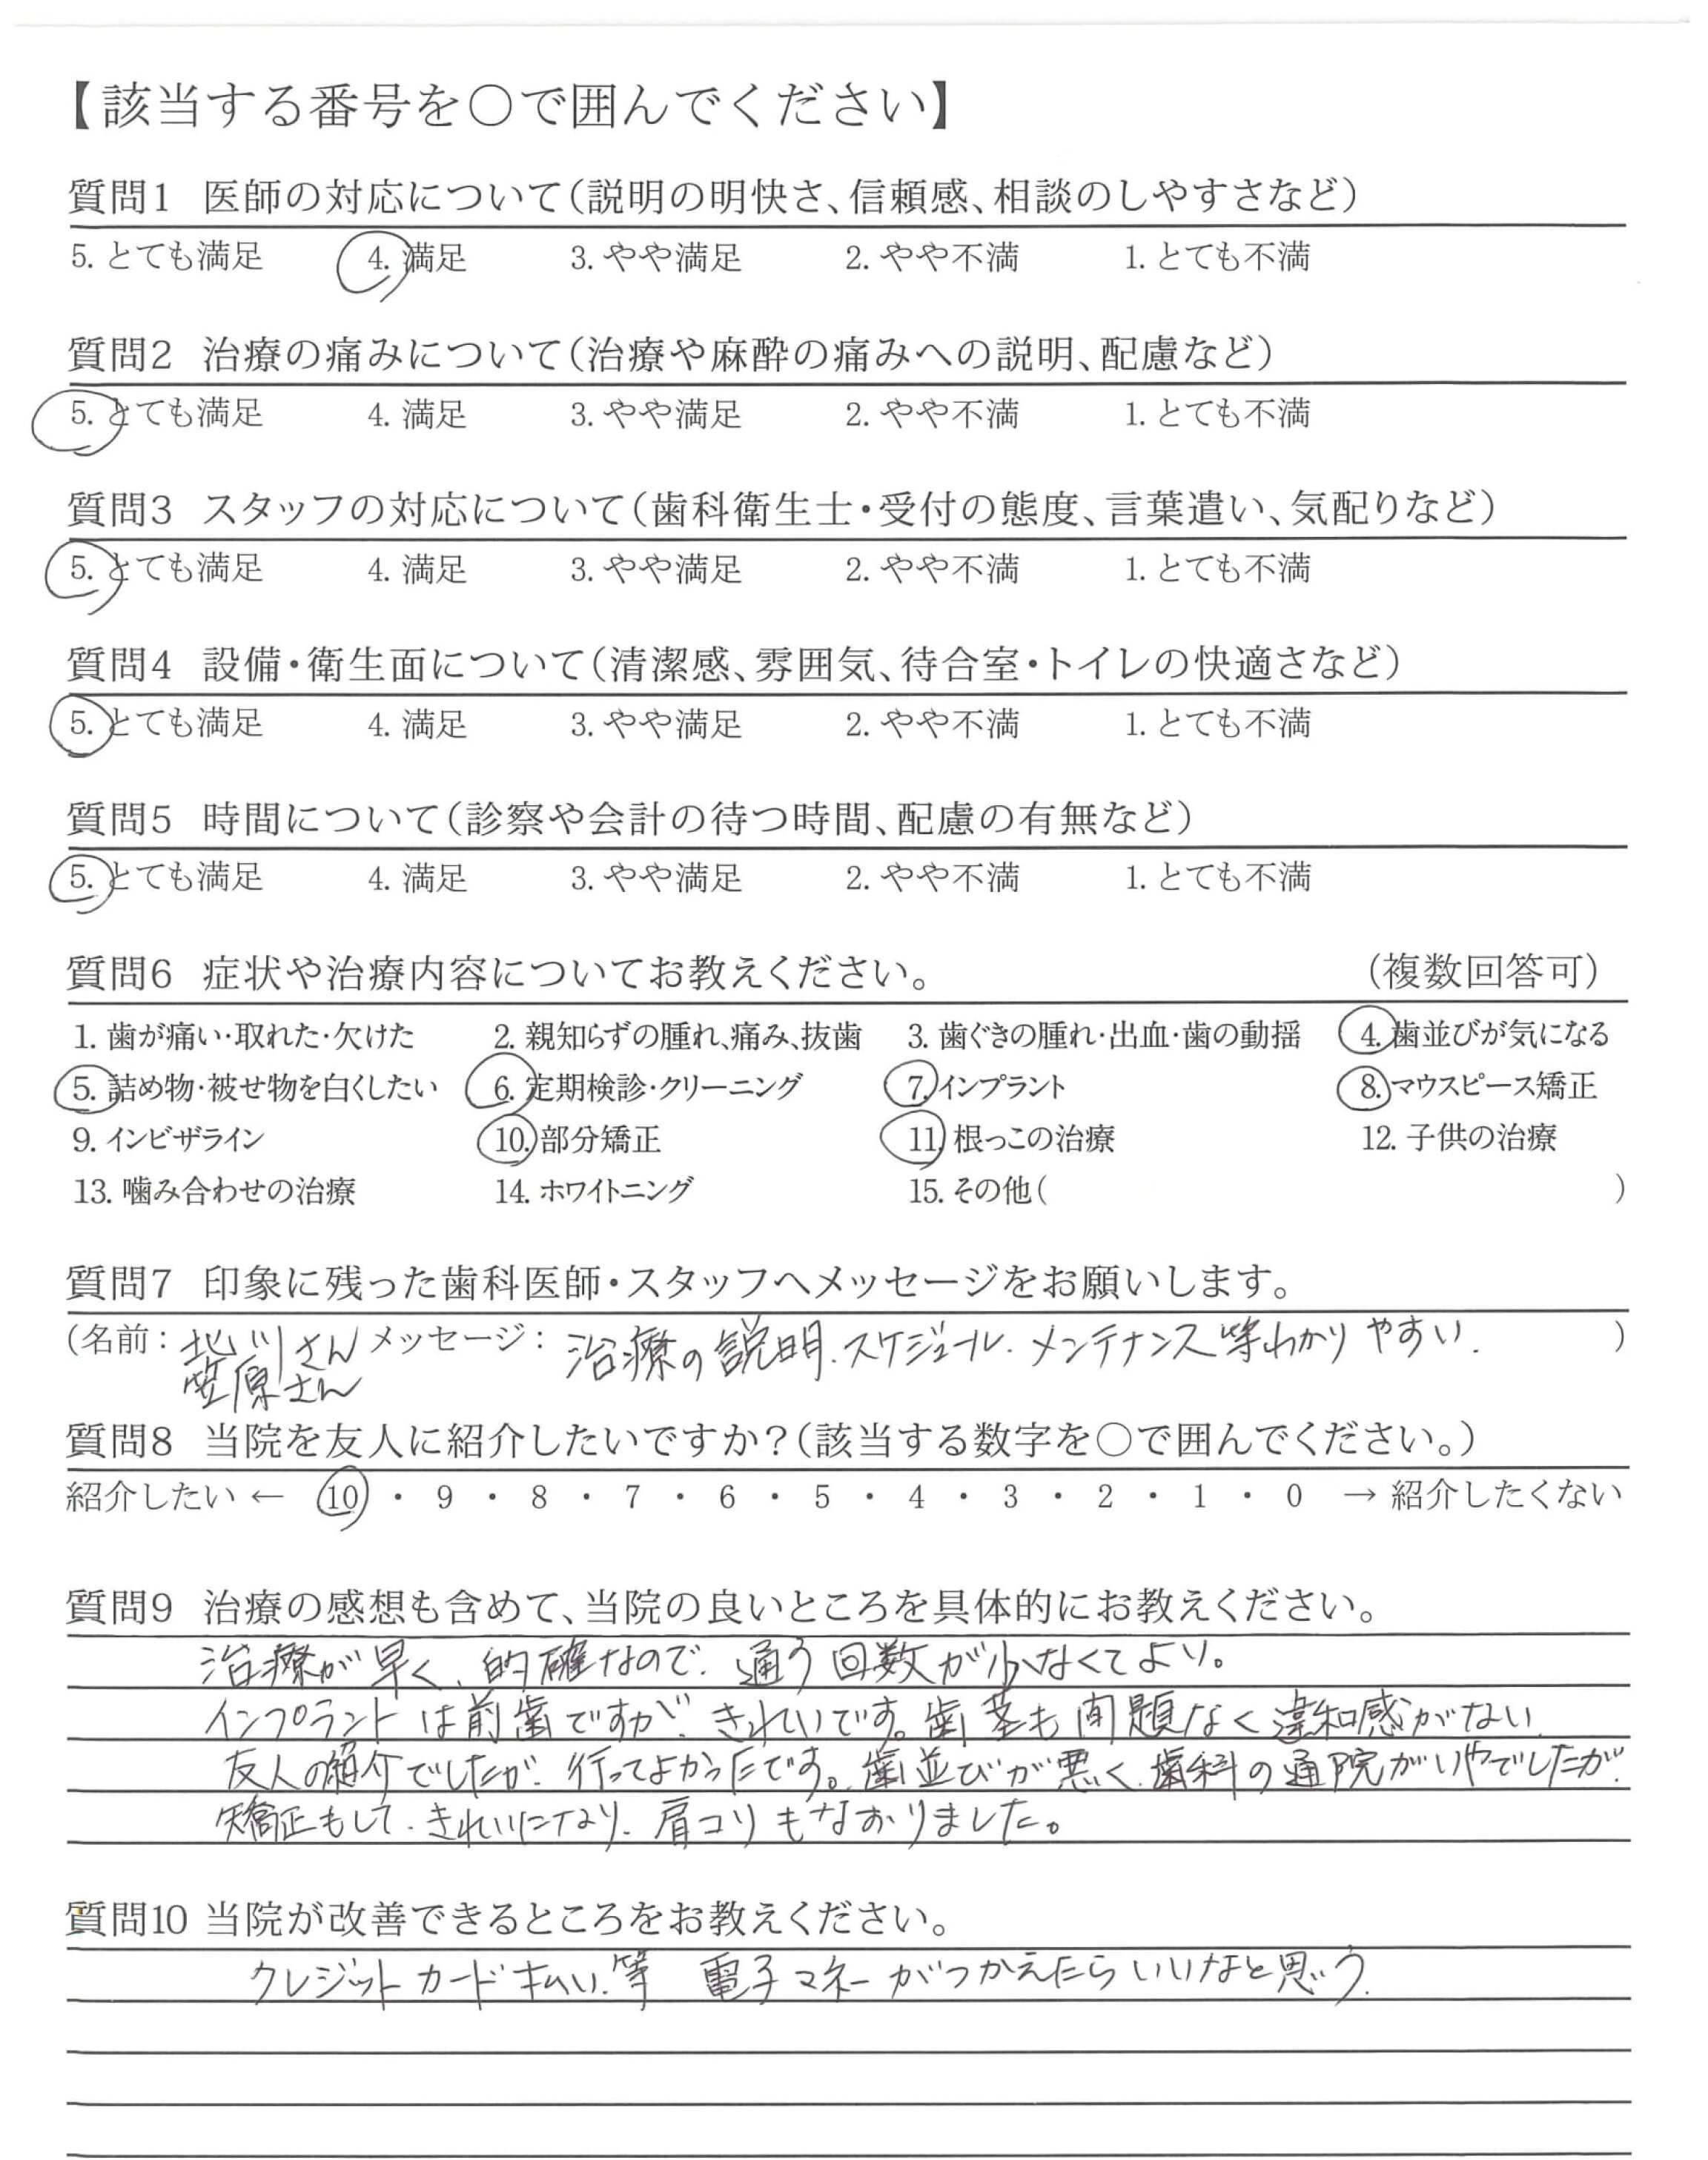 【該当する番号を○で囲んでください】
質問1 医師の対応について(説明の明快さ、信頼感、相談のしやすさなど)
5. とても満足 4. 満足 3. やや満足 2. やや不満 1. とても不満
質問2 治療の痛みについて(治療や麻酔の痛みへの説明、配慮など)
5. とても満足 4. 満足 3. やや満足 2. やや不満 1. とても不満
質問3 スタッフの対応について(歯科衛生士・受付の態度、言葉遣い、気配りなど)
5. とても満足 4. 満足 3. やや満足 2. やや不満 1. とても不満
質問4 設備・衛生面について(清潔感、雰囲気、待合室・トイレの快適さなど)
5. とても満足 4. 満足 3. やや満足 2. やや不満 1. とても不満
質問5 時間について(診察や会計の待つ時間、配慮の有無など)
5. とても満足 4. 満足 3. やや満足 2. やや不満 1. とても不満
質問6 症状や治療内容についてお教えください。 (複数回答可)
1. 歯が痛い・取れた・欠けた 2. 親知らずの腫れ、痛み、抜歯 3. 歯ぐきの腫れ・出血・歯の動揺 4. 歯並びが気になる
5. 詰め物・被せ物を白くしたい 6. 定期検診・クリーニング 7. インプラント 8. マウスピース矯正
9. インビザライン 10. 部分矯正 11. 根っこの治療 12. 子供の治療
13. 噛み合わせの治療 14. ホワイトニング 15. その他( )
質問7 印象に残った歯科医師・スタッフへメッセージをお願いします。
(名前: 北川さん メッセージ: 治療の説明、スケジュール、メンテナンス等わかりやすい。 )
笠原さん
質問8 当院を友人に紹介したいですか?(該当する数字を○で囲んでください。)
紹介したい ← 10 ・ 9 ・ 8 ・ 7 ・ 6 ・ 5 ・ 4 ・ 3 ・ 2 ・ 1 ・ 0 → 紹介したくない
質問9 治療の感想も含めて、当院の良いところを具体的にお教えください。
治療が早く、的確なので、通う回数が少なくてよい。
インプラントは前歯ですが、きれいです。歯茎も問題なく違和感がない。
友人の紹介でしたが、行ってよかったです。歯並びが悪く、歯科の通院がいやでしたが、
矯正もして、きれいになり、肩コリもなおりました。
質問10 当院が改善できるところをお教えください。
クレジットカード払い、等 電子マネーがつかえたらいいなと思う。